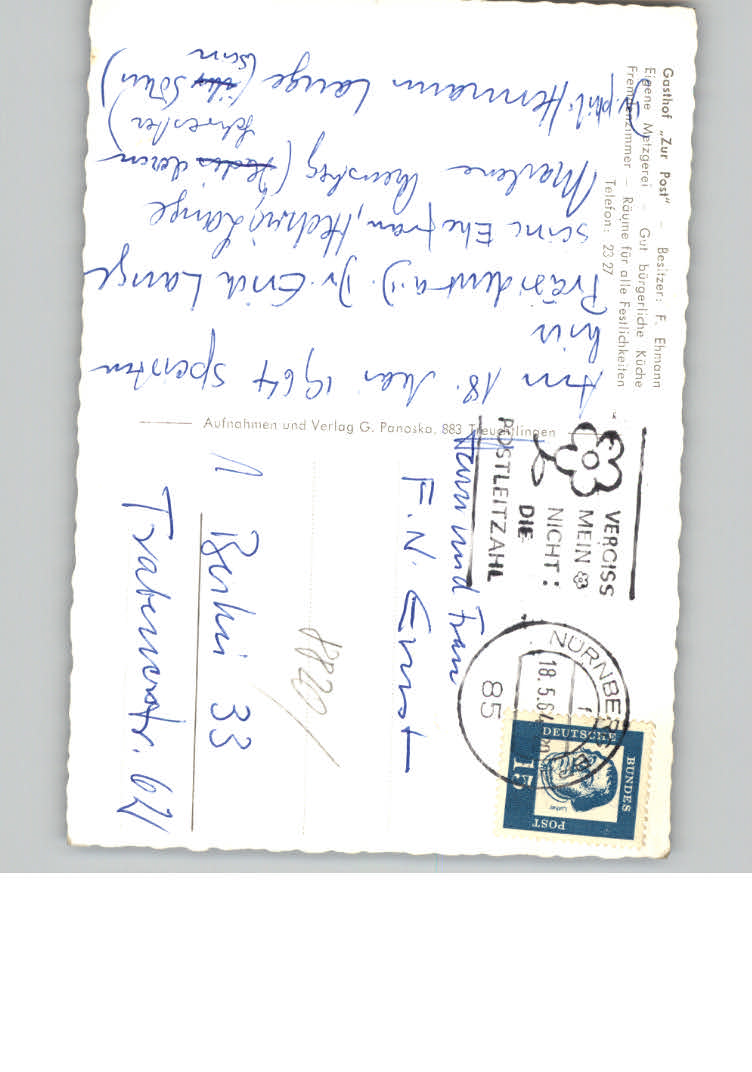 Gasthof „Zur Post" – Besitzer: F. Ehmann
Eigene Metzgerei – Gut bürgerliche Küche
Fremdenzimmer – Räume für alle Festlichkeiten
Telefon: 23 27
Am 18. Mai 1964 speisten
hier
Präsident a.D. Dr. Erich Lange
seine Ehefrau, Hedwig Lange
Marlene (deren
Schwester)
Dr. phil. Hermann Lange (Sohn)
Aufnahmen und Verlag G. Panoska, 883 Treuchtlingen
VERGISS
MEIN
NICHT:
DIE
POSTLEITZAHL
NÜRNBERG
18.5.64
85
DEUTSCHE
BUNDES
POST
15
Luther
Herrn und Frau
F. N. Ernst
1 Berlin 33
8820